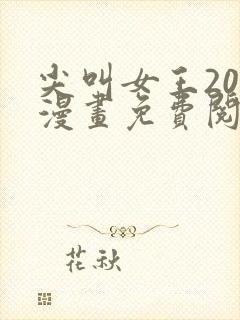 尖叫女王20
漫畫免費閱
花秋